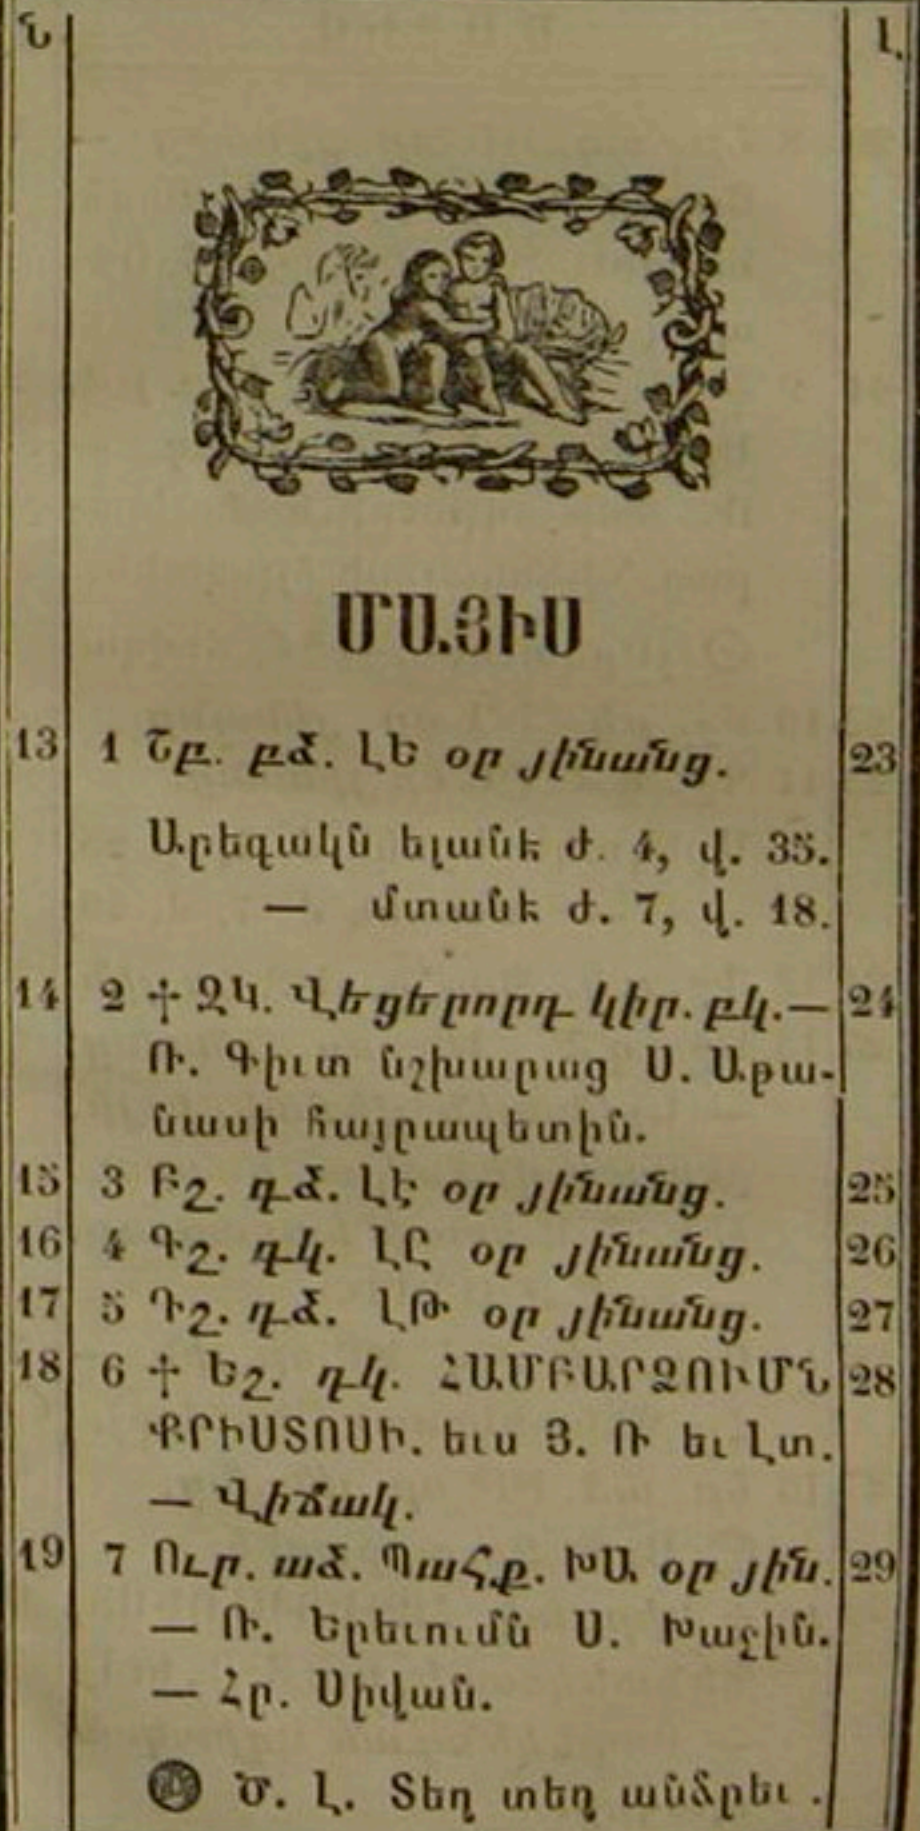 Ն Լ
ՄԱՅԻՍ
13 1 Շբ. բձ. ԼԵ օր յինանց. 23
Արեգակն ելանէ ժ. 4, վ. 35.
— մտանէ ժ. 7, վ. 18.
14 2 † ԶԿ. Վեցերորդ կիր. բկ.— 24
Ռ. Գիւտ նշխարաց Ս. Աթա-
նասի հայրապետին.
15 3 Բշ. գձ. ԼԷ օր յինանց. 25
16 4 Գշ. գկ. ԼԸ օր յինանց. 26
17 5 Դշ. դձ. ԼԹ օր յինանց. 27
18 6 † Եշ. դկ. ՀԱՄԲԱՐՁՈՒՄՆ 28
ՔՐԻՍՏՈՍԻ. եւս Յ. Ռ եւ Լտ.
— Վիճակ.
19 7 Ուր. աձ. Պահք. ԽԱ օր յին. 29
— Ռ. Երեւումն Ս. Խաչին.
— Հր. Սիվան.
Ծ. Լ. Տեղ տեղ անձրեւ .